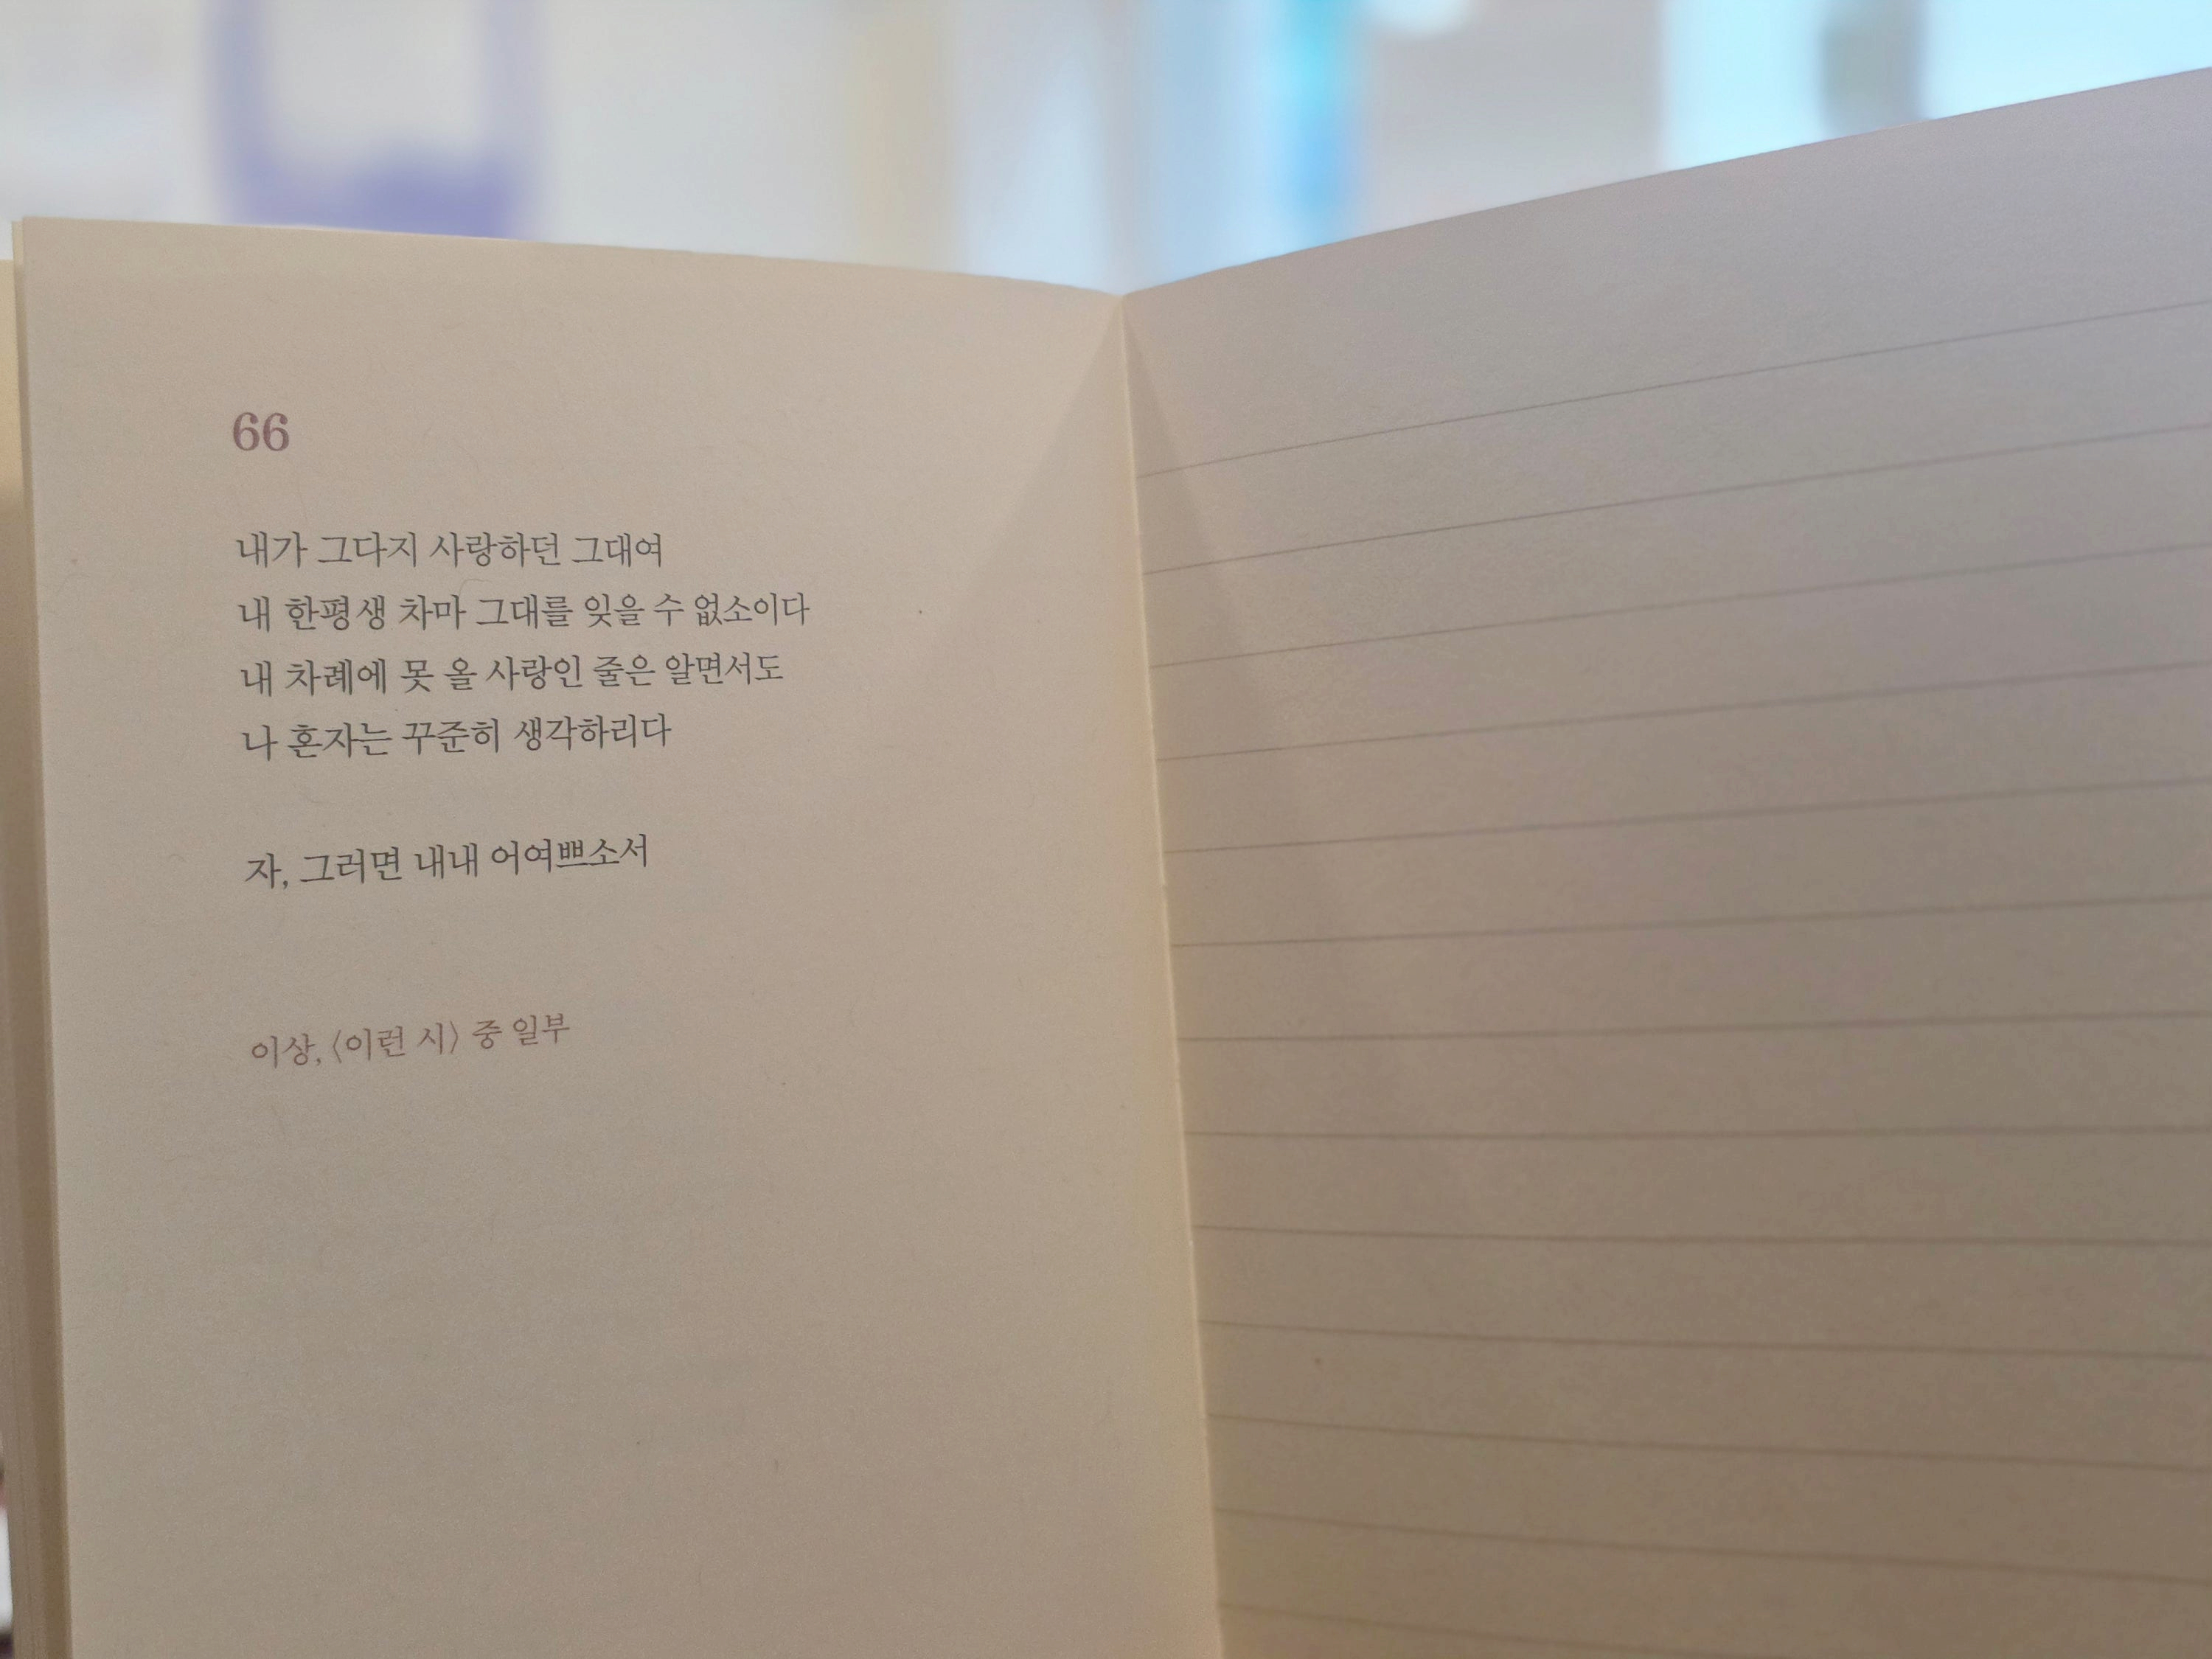 66
내가 그다지 사랑하던 그대여
내 한평생 차마 그대를 잊을 수 없소이다
내 차례에 못 올 사랑인 줄은 알면서도
나 혼자는 꾸준히 생각하리다
자, 그러면 내내 어여쁘소서
이상, 〈이런 시〉 중 일부